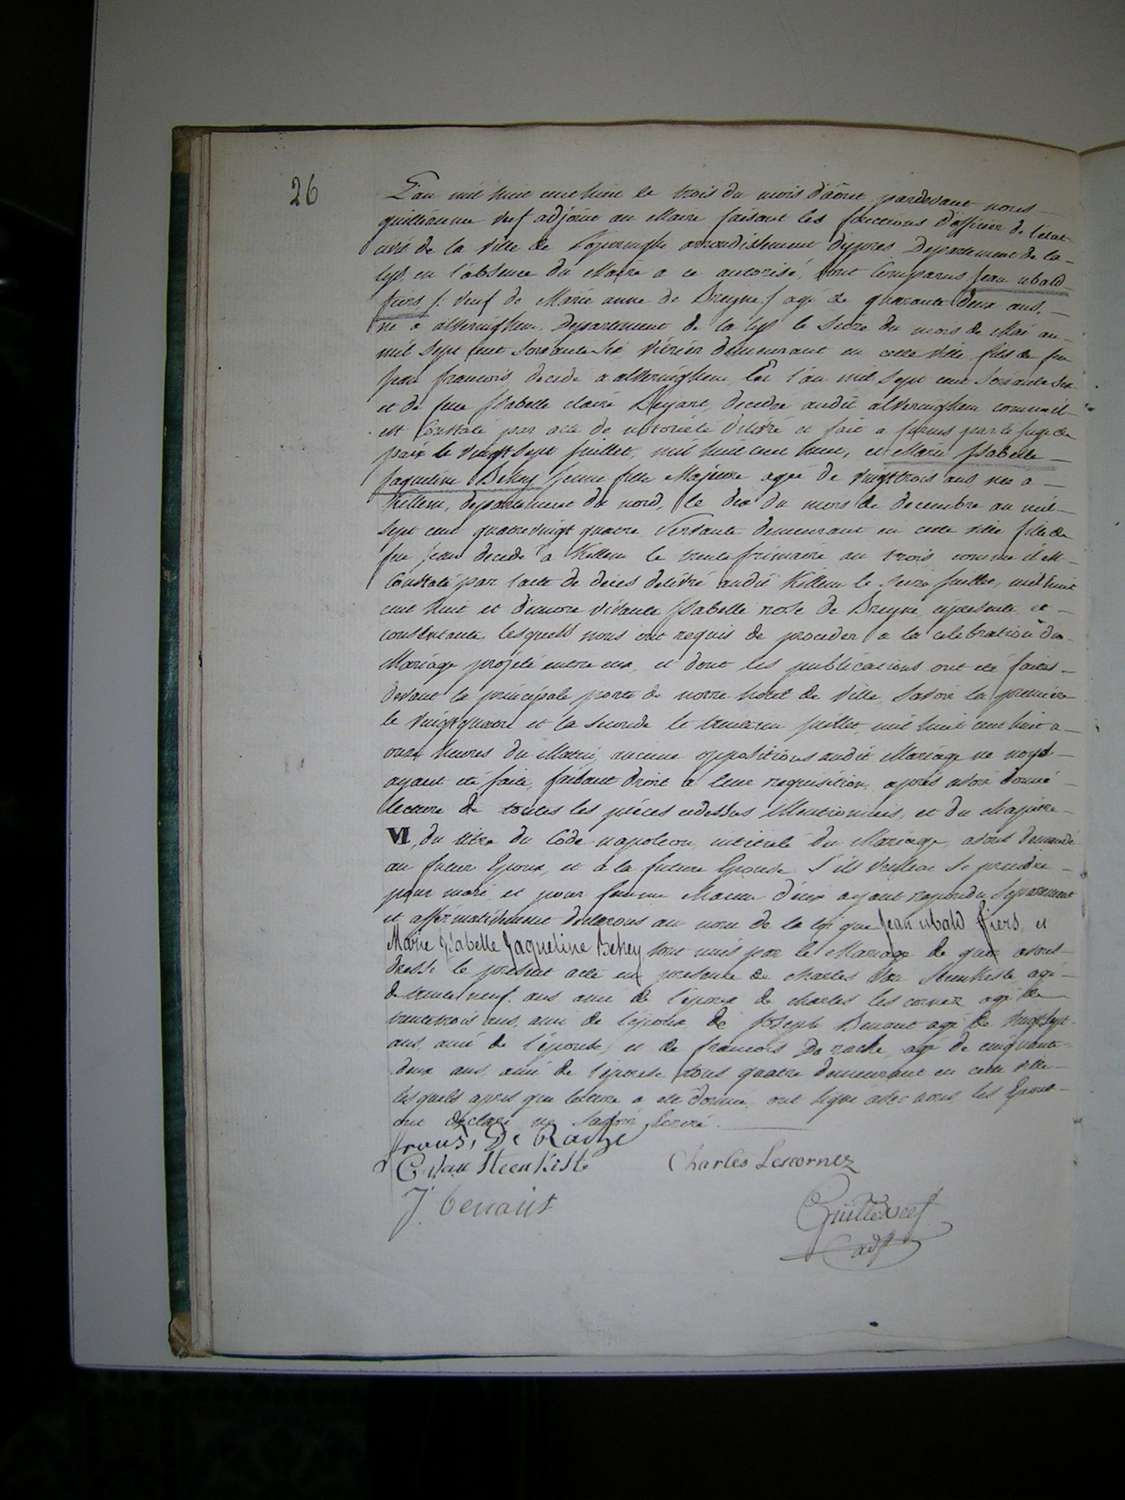 26
L'an mil huit cent huit le trois du mois d'août pardevant nous
guillaume Nef adjoint au Maire faisant les fonctions d'officier de l'etat
civil de la Ville de Poperinghe arrondissement d'ypres Departement de la
Lys en l'absence du Maire a ce autorisé, sont Comparus Jean ubald
fiers /: veuf de Marie anne de Breyne :/ agé de quarante deux ans,
né a alveringhem, Departement de la Lys le seize du mois de Mai an
mil sept cent soixante six demeurant en cette ville, fils de feu
jean francois, decedé a alveringhem l'an mil sept cent soixante six
et de feue Isabelle claire decedée audit alveringhem comme il
est Constaté par acte de notorieté delivré et fait a furnes par le Juge de
paix le vingt sept juillet, mil huit cent huit, et Marie Isabelle
Jaqueline Behey jeune fille Majeure agée de vingt trois ans née a
Killem, departement du nord, le dix du mois de decembre an mil
sept cent quatre vingt quatre Servante demeurant en cette ville fille de
feu Jean decedé a Killem le trente frimaire an trois comme il est
Constaté par l'acte de deces delivré audit Killem le seize juillet, mil huit
cent huit et d'encore vivante Isabelle rose de Breyne cipresente et
consentante, lesquels nous ont requis de proceder a la celebration du
Mariage projeté entre eux, et dont les publications ont été faites
devant la principale porte de notre hotel de Ville, savoir la premiere
le vingt quatre et la seconde le trente un juillet, mil huit cent huit a
onze heures du Matin, aucune oppositions audit Mariage ne nous
ayant été faite, faisant droit a leur requisition, après avoir donné
lecture de toutes les pièces cidessus Mentionnées, et du chapitre
VI, du titre du Code napoleon, intitulé du Mariage, avons demandé
au futur Epoux, et à la future Epouse S'ils Veullent se prendre
pour mari et pour femme chacun d'eux ayant repondu Separement
et affirmativement declarons au nom de la loi que Jean ubald fiers, et
Marie Isabelle Jaqueline Behey sont unis par le Mariage de quoi avons
dressé le present acte en presence de charles Van Steenkiste agé
de trente neuf ans ami de l'epoux de charles les cornez agé de
trente trois ans, ami de l'epoux de Joseph Benaut agé de vingt sept
ans, ami de l'épouse, et de francois De rache, agé de cinquante
deux ans ami de l'epouse tous quatre demeurant en cette ville
lesquels après que lecture a été donnée, ont signé avec nous les Epoux
ont declaré ne savoir Ecrire.
frans, De Rache
C Van Steenkiste
Charles Lescornez
J. benaut
Guille Nef
adjt